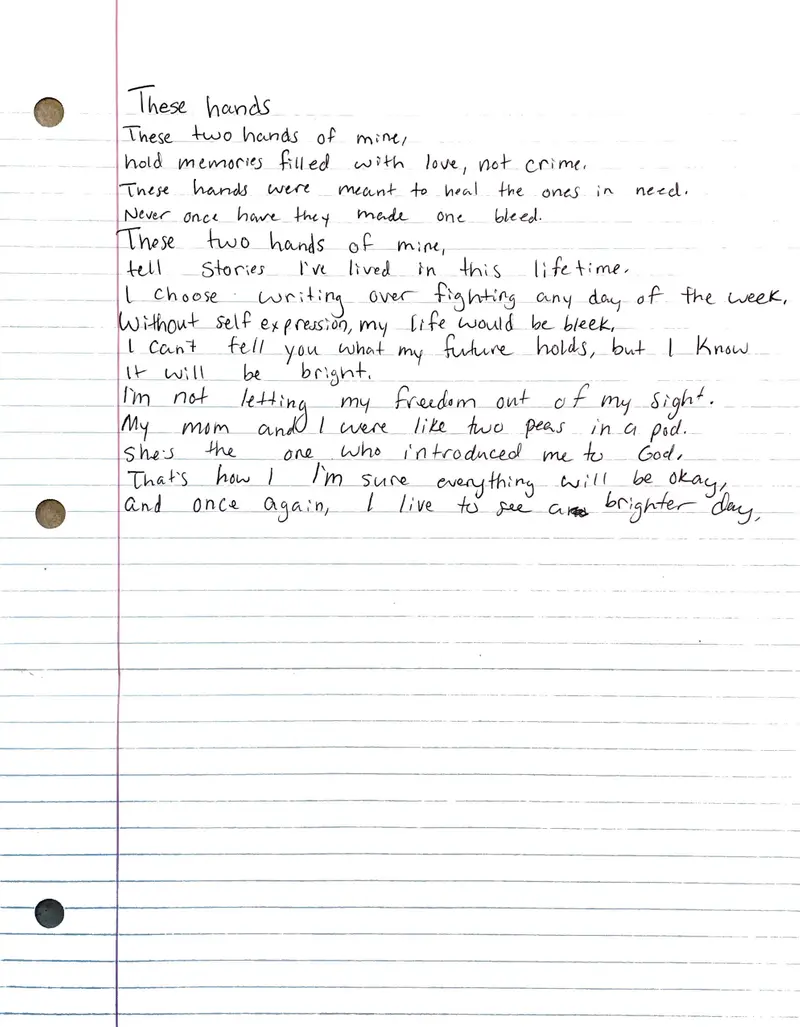 These hands
These two hands of mine,
hold memories filled with love, not crime.
These hands were meant to heal the ones in need.
Never once have they made one bleed.
These two hands of mine,
tell stories I've lived in this lifetime.
I choose writing over fighting any day of the week.
Without self expression, my life would be bleek.
I can't tell you what my future holds, but I know
it will be bright.
I'm not letting my freedom out of my sight.
My mom and I were like two peas in a pod.
She's the one who introduced me to God.
That's how I I'm sure everything will be okay,
and once again, I live to see a brighter day.